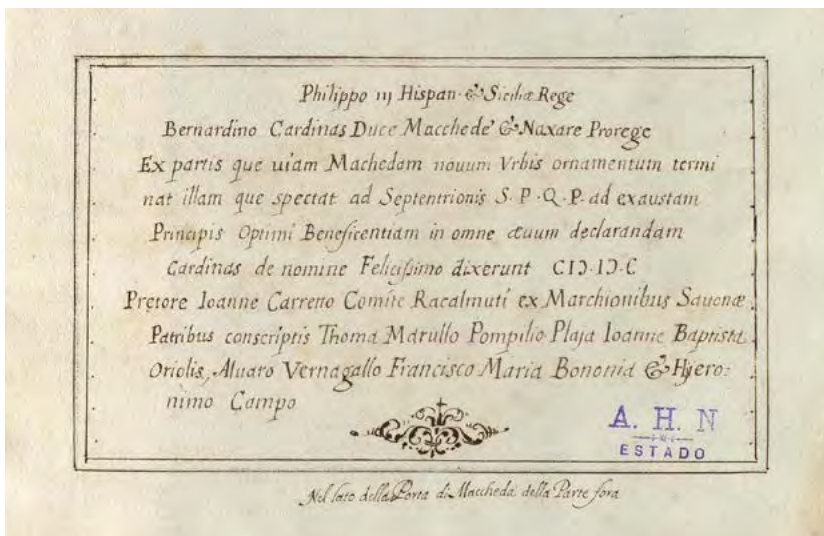 Philippo iij Hispan. & Siciliæ Rege
Bernardino Cardinas Duce Macchede' & Naxare Prorege
Ex partis que uiam Machedam nouum Vrbis ornamentum termi
nat illam que spectat ad Septentrionis S. P. Q. P. ad exaustam
Principis Optimi Beneficentiam in omne æuum declarandam
Cardinas de nomine Felicissimo dixerunt CIↃ·IↃ·C
Pretore Ioanne Carretto Comite Racalmuti ex Marchionibus Sauonæ
Patribus conscriptis Thoma Marullo Pompilio Plaja Ioanne Baptista
Oriolis, Aluaro Vernagallo Francisco Maria Bononia & Hyero:
nimo Campo
A. H. N
ESTADO
Nel lato della Porta di Maccheda della Parte fora